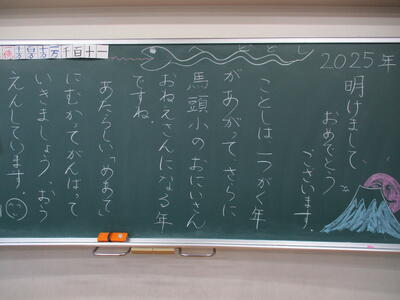 2025年
明けまして、
おめでとう
ございます。
ことしは一つがく年
があがって、さらに
馬頭小のおにいさん
おねえさんになる年
ですね。
あたらしい「めあて」
にむかってがんばって
いきましょう。おう
えんしています。
一万 千 百 十 一